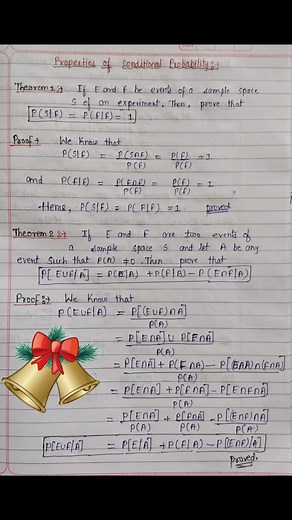 Properties of Conditional Probability :-
Theorem 1 :- If E and F be events of a sample space
S of an experiment. Then, prove that
P(S|F) = P(F|F) = 1
Proof :- We Know that
P(S|F) = P(S∩F)/P(F) = P(F)/P(F) = 1
and P(F|F) = P(F∩F)/P(F) = P(F)/P(F) = 1
Hence, P(S|F) = P(F|F) = 1 proved
Theorem 2 :- If E and F are two events of
a sample space S and let A be any
event such that P(A) ≠ 0. Then prove that
P[E∪F|A] = P(E|A) + P(F|A) - P(E∩F|A)
Proof :- We Know that
P(E∪F|A) = P[(E∪F)∩A]/P(A)
= P[(E∩A) ∪ P(F∩A)]/P(A)
= P[E∩A] + P(F∩A) - P[(E∩A)∩(F∩A)]/P(A)
= P[E∩A] + P[F∩A] - P[E∩F∩A]/P(A)
= P[E∩A]/P(A) + P[F∩A]/P(A) - P[(E∩F)∩A]/P(A)
P[E∪F|A] = P[E|A] + P(F|A) - P[(E∩F)|A]
Proved.